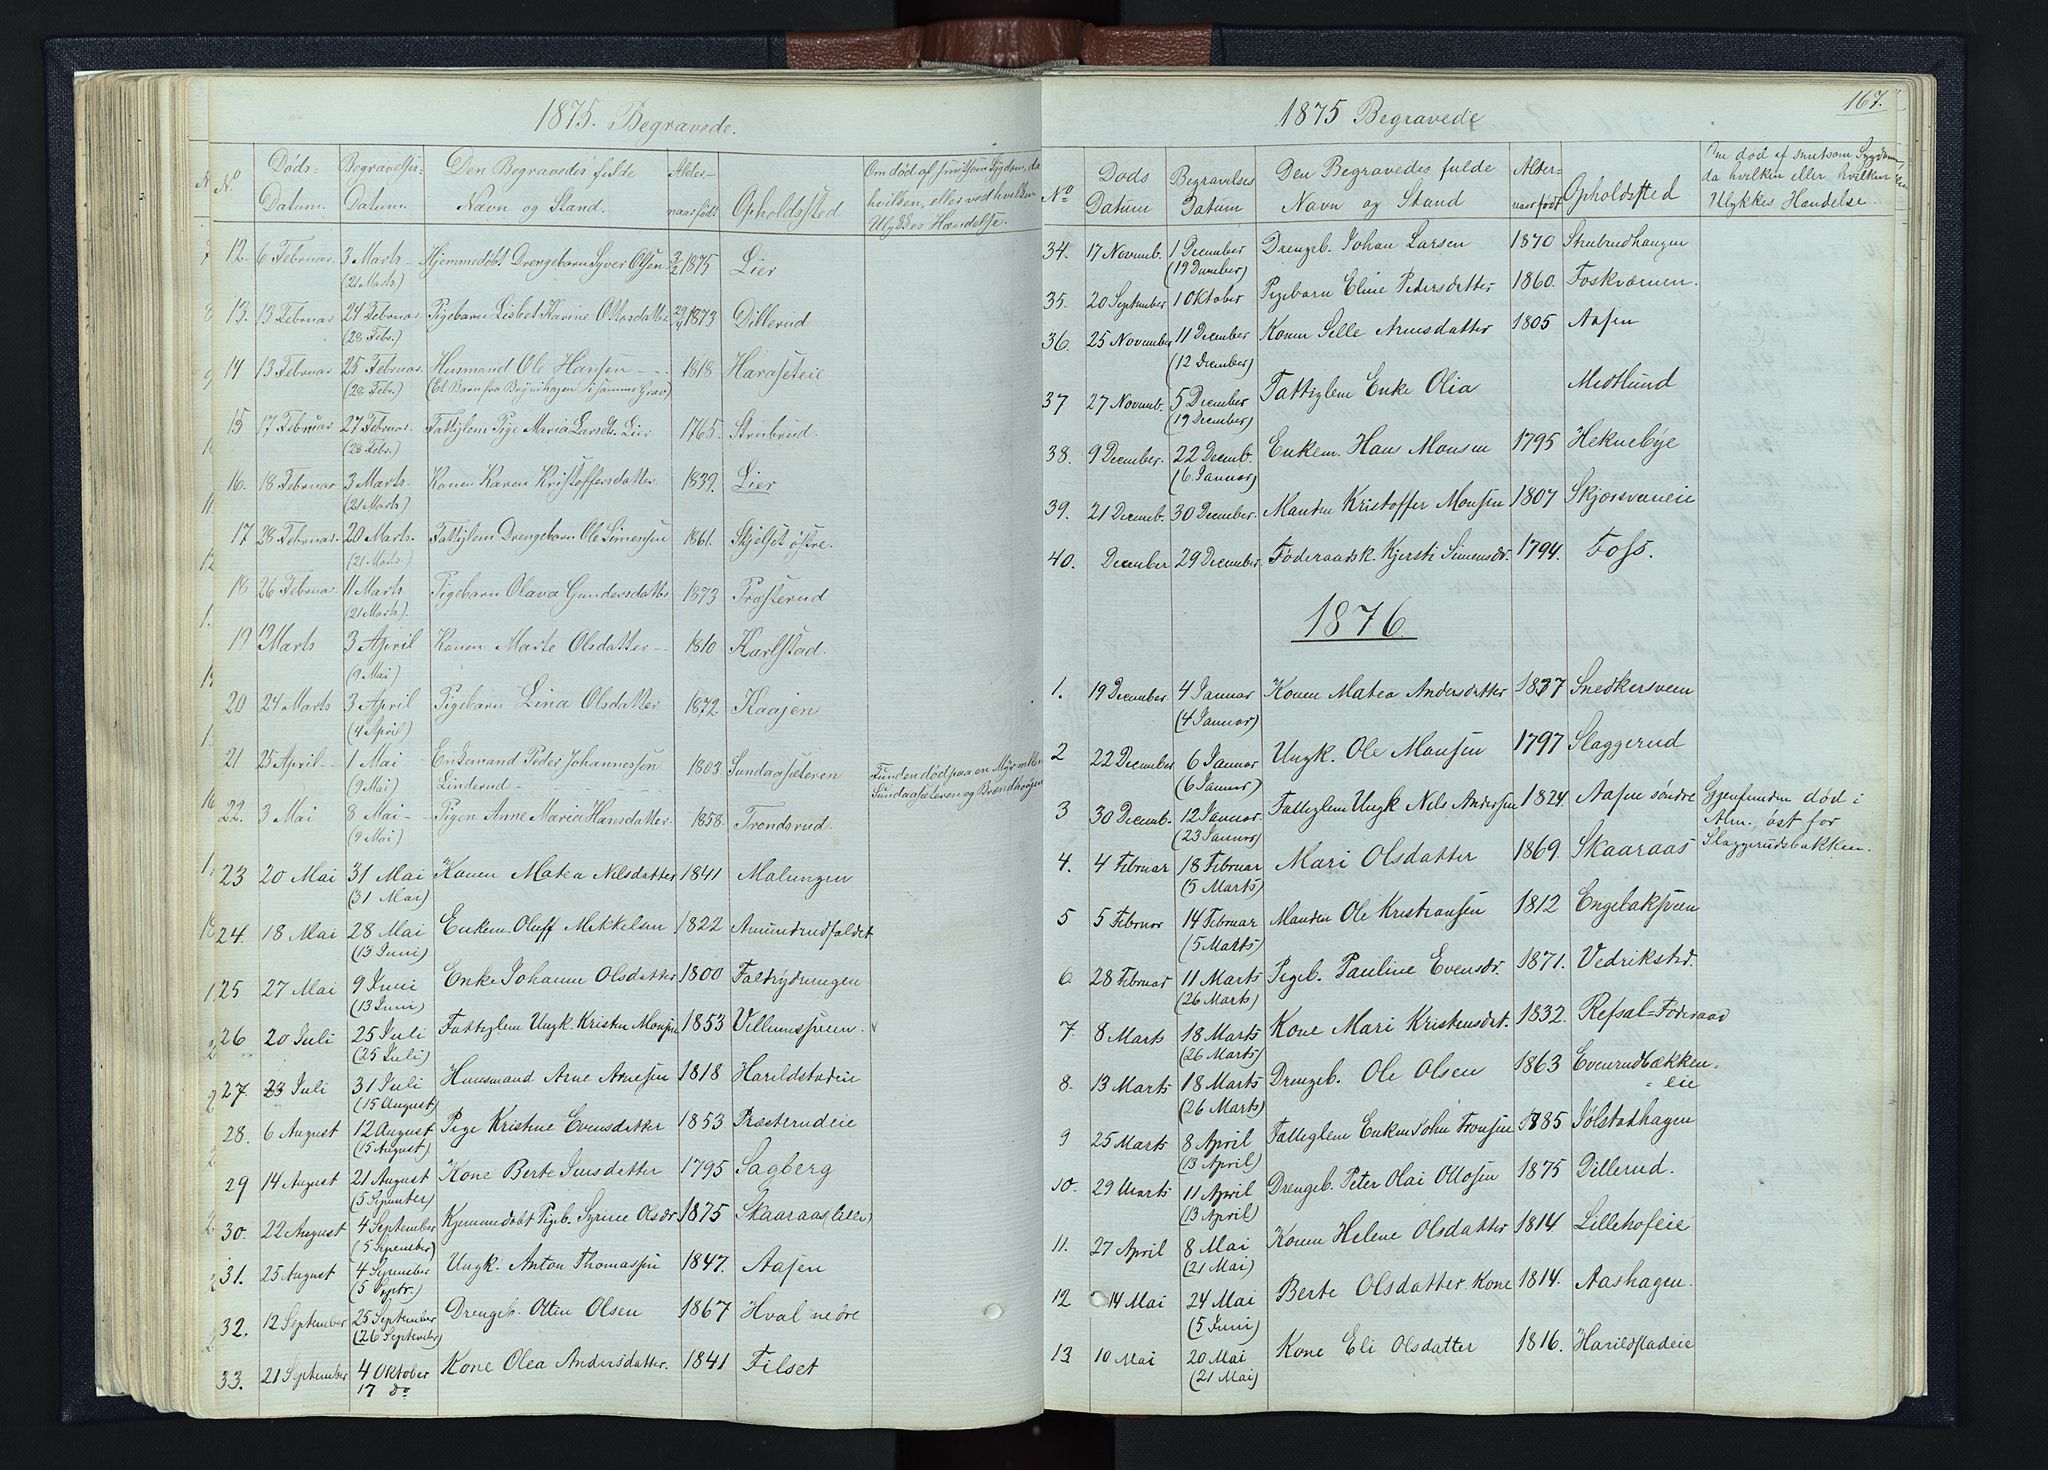 1875. Begravede.
No Døds-Datum. Begravelses-Datum. Den Begravedes fulde Navn og Stand. Alder-naar født Opholdssted Om død af smitsom Sygdom, da hvilken, eller ved hvilken Ulykkes Hændelse.
12. 6 Februar. 3 Marts (21 Marts) Hjemmedøbt Drengebarn Syver Olsen 3/2 1875 Lier
13. 13 Februar 24 Februar (28 Febr.) Pigebarn Lisbet Karine Ottosdatter 1873 Dillerud
14 13 Februar 25 Februar (28 Febr.) Husmand Ole Hansen (Et Barn fra Brynihagen i samme Grav) 1818 Haraseteie
15 17 Februar 27 Februar (28 Febr.) Fattiglem Pige Maria Larsdt. Lier 1765 Strubrud.
16. 18 Februar 3 Marts (21 Marts) Konen Karen Kristoffersdatter 1839. Lier
17 28 Februar. 20 Marts. (21 Marts) Fattiglem Drengebarn Ole Simensen 1861. Skjelset østre.
18 26 Februar. 11 Marts (21 Marts). Pigebarn Olava Gundersdatter 1873 Præsterud
19 19 Marts 3 April (9 Mai) Konen Marte Olsdatter 1810 Karlstad.
20 24 Marts 3 April (4 April) Pigebarn Lina Olsdatter 1872. Kaasen
21 25 April 1 Mai (9 Mai) Enkemand Peder Johannessen Linderud 1803. Sundaasæteren Funden død paa en Myr mellem Sundaasæteren og Brændhaugen
22. 3 Mai 8 Mai (9 Mai) Pigen Anne Maria Hansdatter 1858. Trondsrud.
23 20 Mai 31 Mai (31 Mai) Konen Matea Nilsdatter 1841 Malungen
24. 18 Mai 28 Mai (13 Juni) Enkem. Oluff Mikkelsen 1822 Amundrudfaldet
25 27 Mai 9 Juni (13 Juni) Enke Johanne Olsdatter 1800 Faltrydningen
26 20 Juli 25 Juli (25 Juli) Fattiglem Ungk. Kristen Monsen 1853 Villumsveen.
27. 23 Juli 31 Juli (15 August) Huusmand Arne Arnesen 1818 Harildstadeie
28. 6 August 12 August (15 August) Pige Kristine Evensdatter 1853 Præsterudeie
29 14 August 21 August (5 September) Kone Berte Jensdatter 1795 Sagberg
30. 22 August 4 September (5 September) Hjemmedøbt Pigeb. Syrine Olsdr. 1875 Skaaraas (lille)
31. 25 August 4 September (5 Septr.) Ungk. Anton Thomassen 1847. Aasen
32. 12 September 25 September (26 September) Drengeb. Otten Olsen 1867 Hval nedre
33. 21 September 4 Oktober 17 Do Kone Olea Andersdatter. 1841 Filset
1875 Begravede
167.
No Døds Datum Begravelses Datum Den Begravedes fulde Navn og Stand Alder-naar født Opholdssted Om død af smitsom Sygdom, da hvilken eller hvilken Ulykkes Hendelse.
34. 17 Novemb. 1 December (19 December) Drengeb. Johan Larsen 1870 Strubrudhaugen
35. 20 September 1 Oktober Pigebarn Eline Pedersdatter 1860. Foskværnen.
36. 25 November 11 December (12 December) Konen Sille Arnesdatter 1805 Aasen
37 27 Novemb. 5 December (19 December) Fattiglem Enke Olia Midtlund
38. 9 December. 22 Decemb. (16. Januar) Enkem. Hans Monsen 1795 Heknebye
39. 21 Decemb. 30 December. Manden Kristoffer Monsen 1807 Skjærsveneie
40. December 29 December. Føderaadsk. Kjersti Simensdr. 1794. Foss.
1876.
1. 19 December. 4 Januar (4 Januar) Konen Matea Andersdatter 1837 Snedkersveen
2 22 December 6 Januar (6 Januar) Ungk. Ole Monsen 1797 Slaggerud
3 30 Decemb. 12 Januar (23 Januar) Fattiglem Ungk Nils Andersen 1824. Aasen søndre Gjenfunden død i Alm., øst for Slaggerudsbakken.
4. 4 Februar 18 Februar (5 Marts) Mari Olsdatter 1869. Skaaraas
5 5 Februar 14 Februar (5 Marts) Manden Ole Kristiansen 1812 Engebaksveen
6. 28 Februar 11 Marts (26 Marts) Pigeb. Pauline Evensdr. 1871. Vedrikstad.
7. 8 Marts 18 Marts (26 Marts) Kone Mari Kristensdat. 1832. Refsal=Føderaad
8. 13 Marts 18 Marts (26 Marts) Drengeb. Ole Olsen 1863 Evenrudbækkeneie
9 25 Marts 8 April (13 April) Fattiglem Enkem John Tronsen 1785 Jølstadhagen
10. 29 Marts 11 April (13 April) Drengeb. Peter Olai Ottosen 1875 Dillerud.
11. 27 April 8 Mai (21 Mai) Konen Helene Olsdatter 1814 Lillehofeie
12 14 Mai 24 Mai (5 Juni) Berte Olsdatter Kone 1814. Aashagen.
13 10 Mai 20 Mai (21 Mai) Kone Eli Olsdatter 1816. Harildstadeie